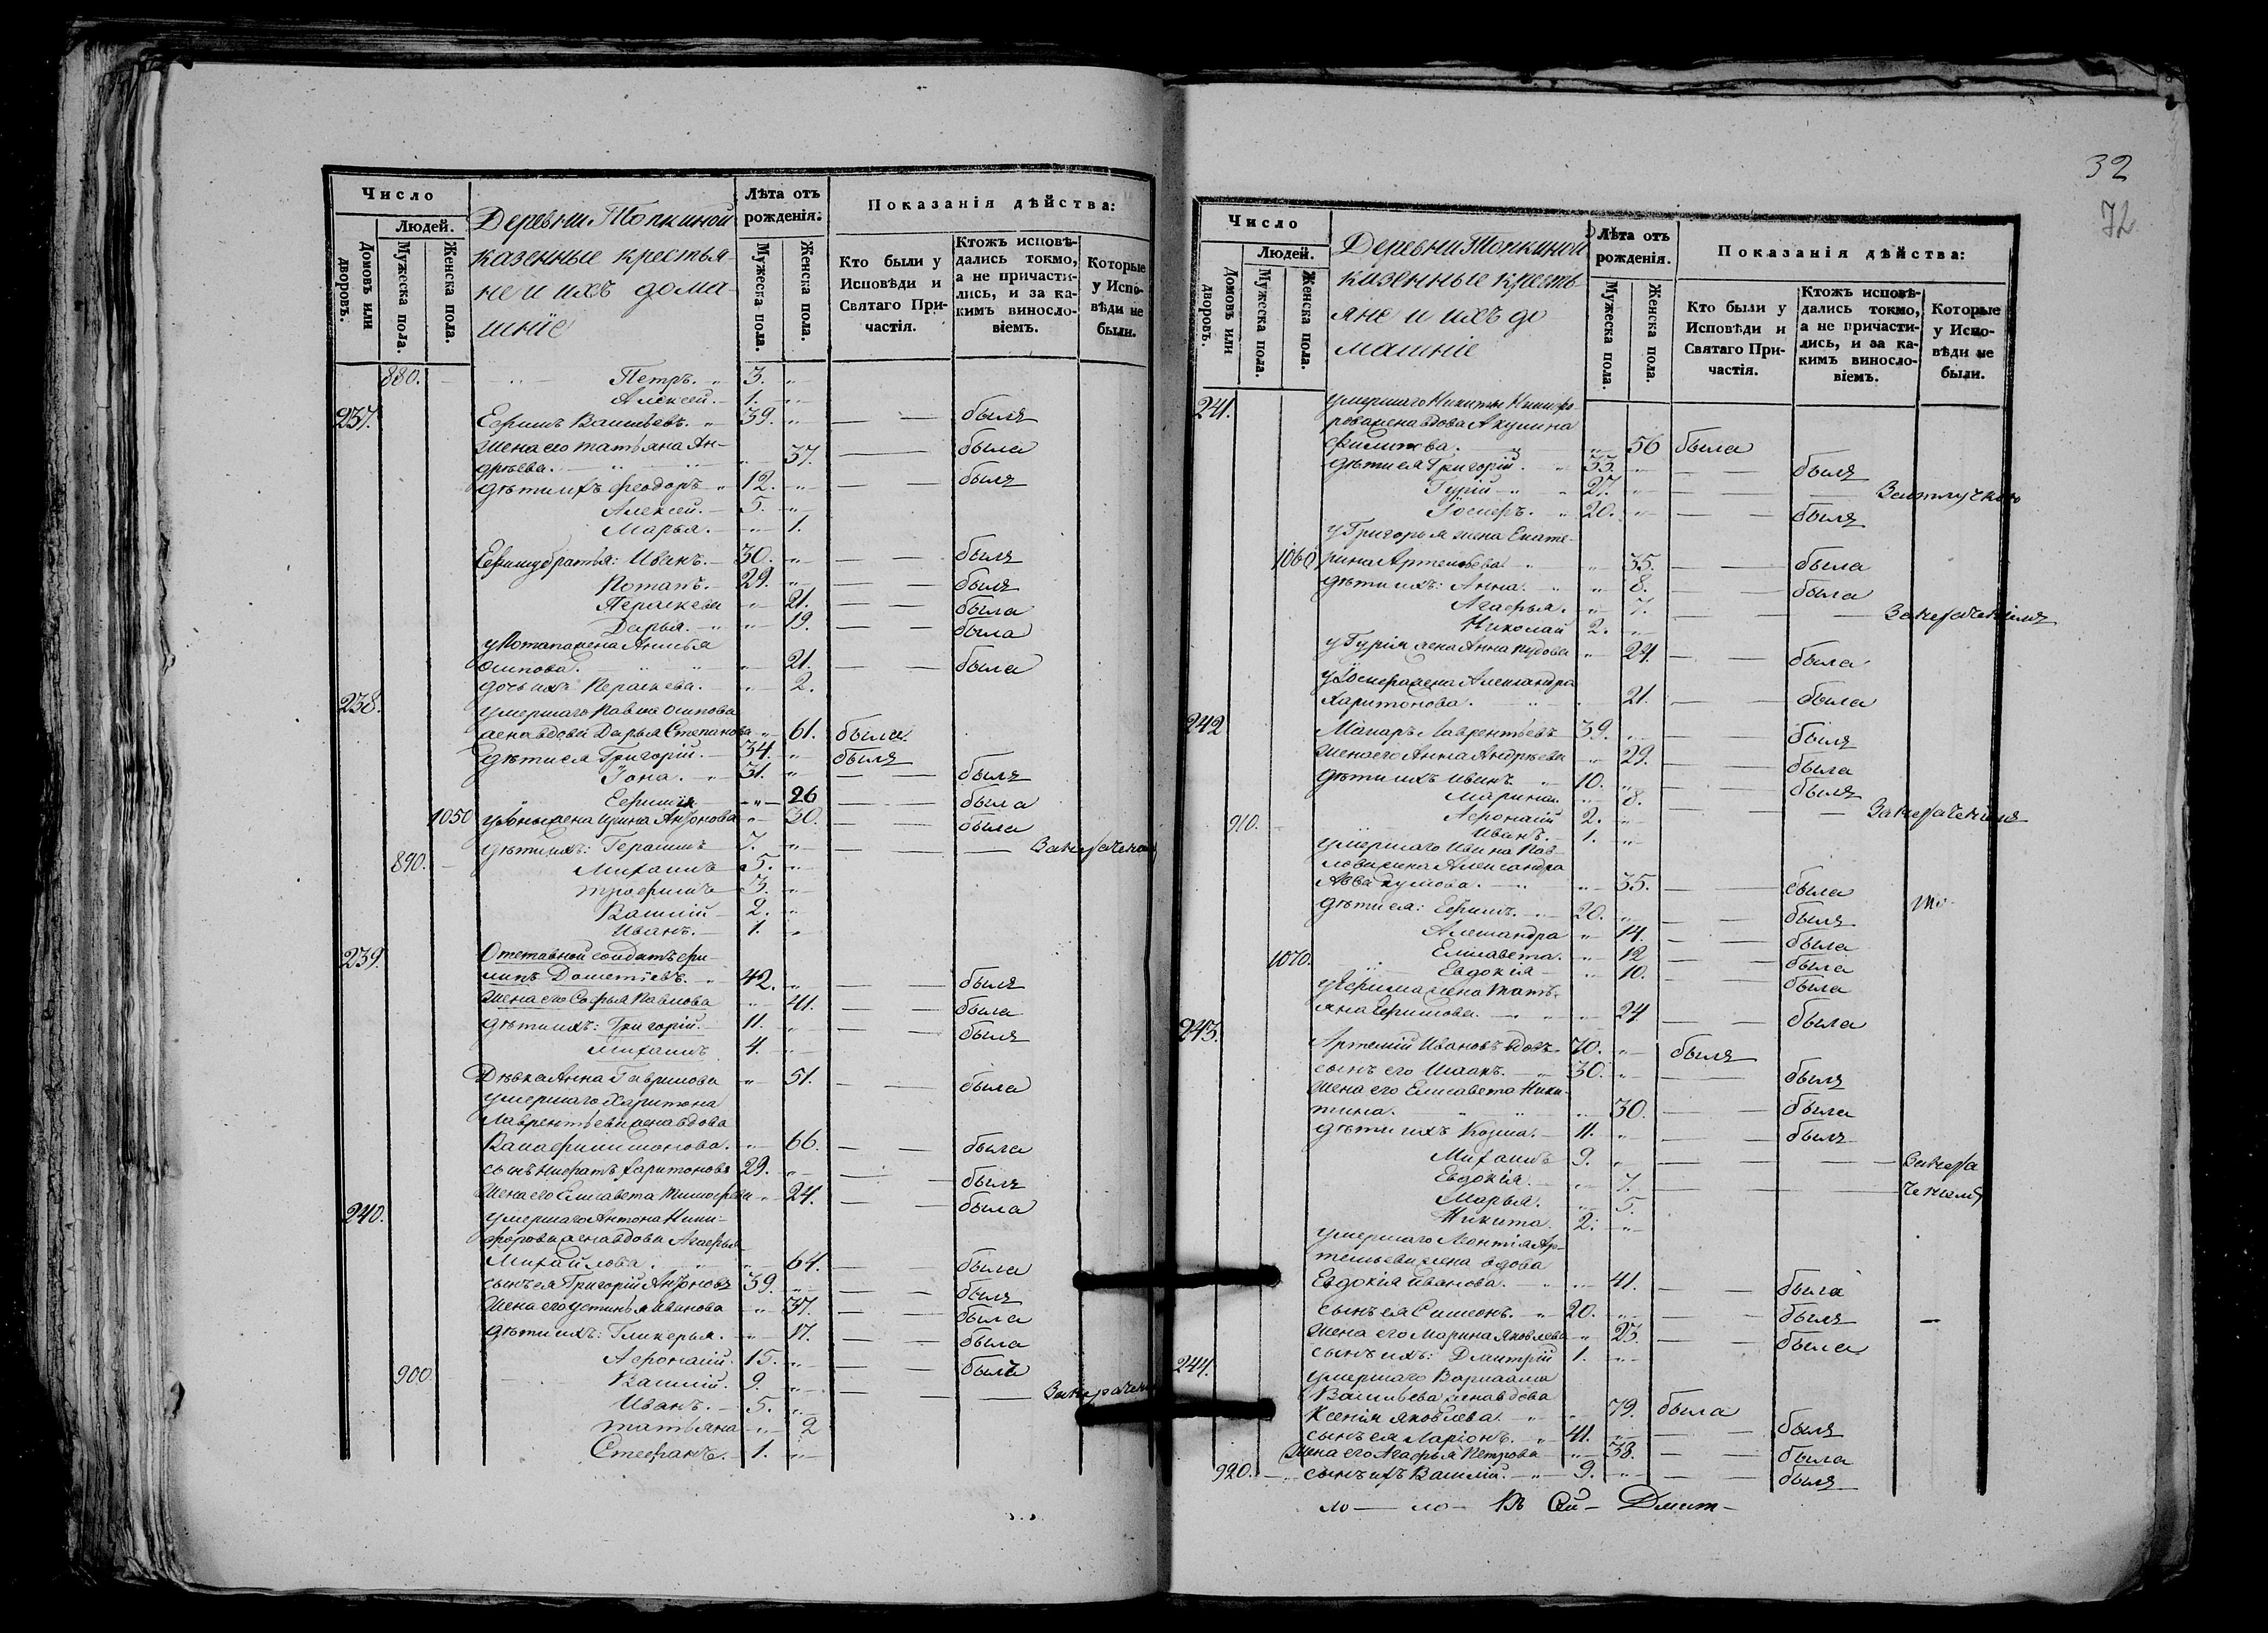 32
72
Число
Людей.
Домовъ или дворовъ.
Мужеска пола.
Женска пола.
Деревни Топкиной
казенные крестья-
не и ихъ дома-
шніе
Лѣта отъ рожденія.
Мужеска пола.
Женска пола.
Показанія дѣйства:
Кто были у Исповѣди и Святаго Причастія.
Ктожъ исповѣ-
дались токмо,
а не причасти-
лись, и за ка-
кимъ винос­ло-
віемъ.
Которые
у Испо-
вѣди не
были.
880. Петръ. 3.
Алексей. 1.
237. Ефимъ Васильевъ. 39. былъ
Жена его Татьяна Ан-
дрѣева. 37. была
дѣти ихъ Феодоръ 12. былъ
Алексей. 5.
Марья. 1.
Ефиму братья: Иванъ. 30. былъ
Потапъ. 29. былъ
Параскева 21. была
Дарья. 19. была
у Потапа жена Анисья
Осипова. 21. была
дочь ихъ Параскева. 2.
238. умершаго Павла Осипова
жена вдова Дарья Степанова 61. была
дѣти ея Григорій. 34. былъ
Іона. 31. былъ
Ефимія 26 была
1050 у Іоны жена Ирина Антонова 30. была
дѣти ихъ: Герасимъ 7.
890. Михаилъ 5.
Трофимъ 3.
Василій 2.
Иванъ. 1.
239. Отставной солдатъ Фи-
липъ Дометіевъ. 42. былъ
Жена его Софья Павлова 41. была
дѣти ихъ: Григорій. 11. былъ
Михаилъ 4.
Дѣвка Анна Гаврилова 51. была
умершаго Харитона
Лаврентьева жена вдова
66. была
сынъ Харитоновъ 29. былъ
Жена его Елисавета Тимофеева 24. была
240. умершаго Антона Ники-
форова жена вдова Агафья
Михайлова. 64. была
сынъ ея Григорій Антоновъ 39. былъ
Жена его Устинья Иванова 37. была
дѣти ихъ: Гликерья. 17. была
Афонасій. 15. былъ
900. Василій. 9.
Иванъ. 5.
Татьяна 2
Стефанъ. 1.
Число
Людей.
Домовъ или дворовъ.
Мужеска пола.
Женска пола.
Деревни Топкиной
казенные кресть-
яне и ихъ до
машніе
Лѣта отъ рожденія.
Мужеска пола.
Женска пола.
Показанія дѣйства:
Кто были у
Исповѣди и
Святаго При-
частія.
Ктожъ исповѣ-
дались токмо,
а не причасти-
лись, и за ка-
кимъ винос­ло-
віемъ.
Которые
у Испо-
вѣди не
были.
241. умершаго Никиты Никифо-
рова жена вдова Акулина
Филипова. 56 была
дѣти ея Григорій. 33. былъ
Гурій 27. За отлучкою
Іосифъ. 20. былъ
у Григорья жена Екате-
1060 рина Артемьева 35. была
дѣти ихъ: Анна. 8. была
Агафья. 7.
Николай 2.
у Гурія жена Анна 24. была
у Іосифа жена Александра
Харитонова. 21. была
242 Макаръ Лаврентьевъ 39. былъ
Жена его Анна Андрѣева 29. была
дѣти ихъ Иванъ 10. былъ
Марина. 8.
910. Афонасій 2.
Иванъ. 1.
умершаго Ивана Пав-
лова жена Александра
Аввакумова. 35. была
дѣти ея: Ефимъ. 20. былъ
Александра 14. была
1070. Елисавета. 12 была
Евдокія 10. была
у Ефима жена Тать-
яна Ефимова. 24 была
243. Артемій Ивановъ вдовъ 70. былъ
сынъ его Исаакъ. 30. былъ
Жена его Елисавета Ники-
тина. 30. была
дѣти ихъ Козма. 11. былъ
Михаилъ 9.
Евдокія. 7.
Марья. 5.
Никита. 2.
умершаго Леонтія Ар-
темьева жена вдова
Евдокія Иванова. 41. была
сынъ ея Симеонъ. 20. былъ
Жена его Марина Яковлева 23. была
сынъ ихъ: Дмитрій 1.
244. умершаго Варлаама
Васильева жена вдова
Ксенія Яковлева. 79. была
сынъ ея Ларіонъ. 41. былъ
Жена его Агафья Петрова 38. была
920. сынъ ихъ Василій. 9. былъ